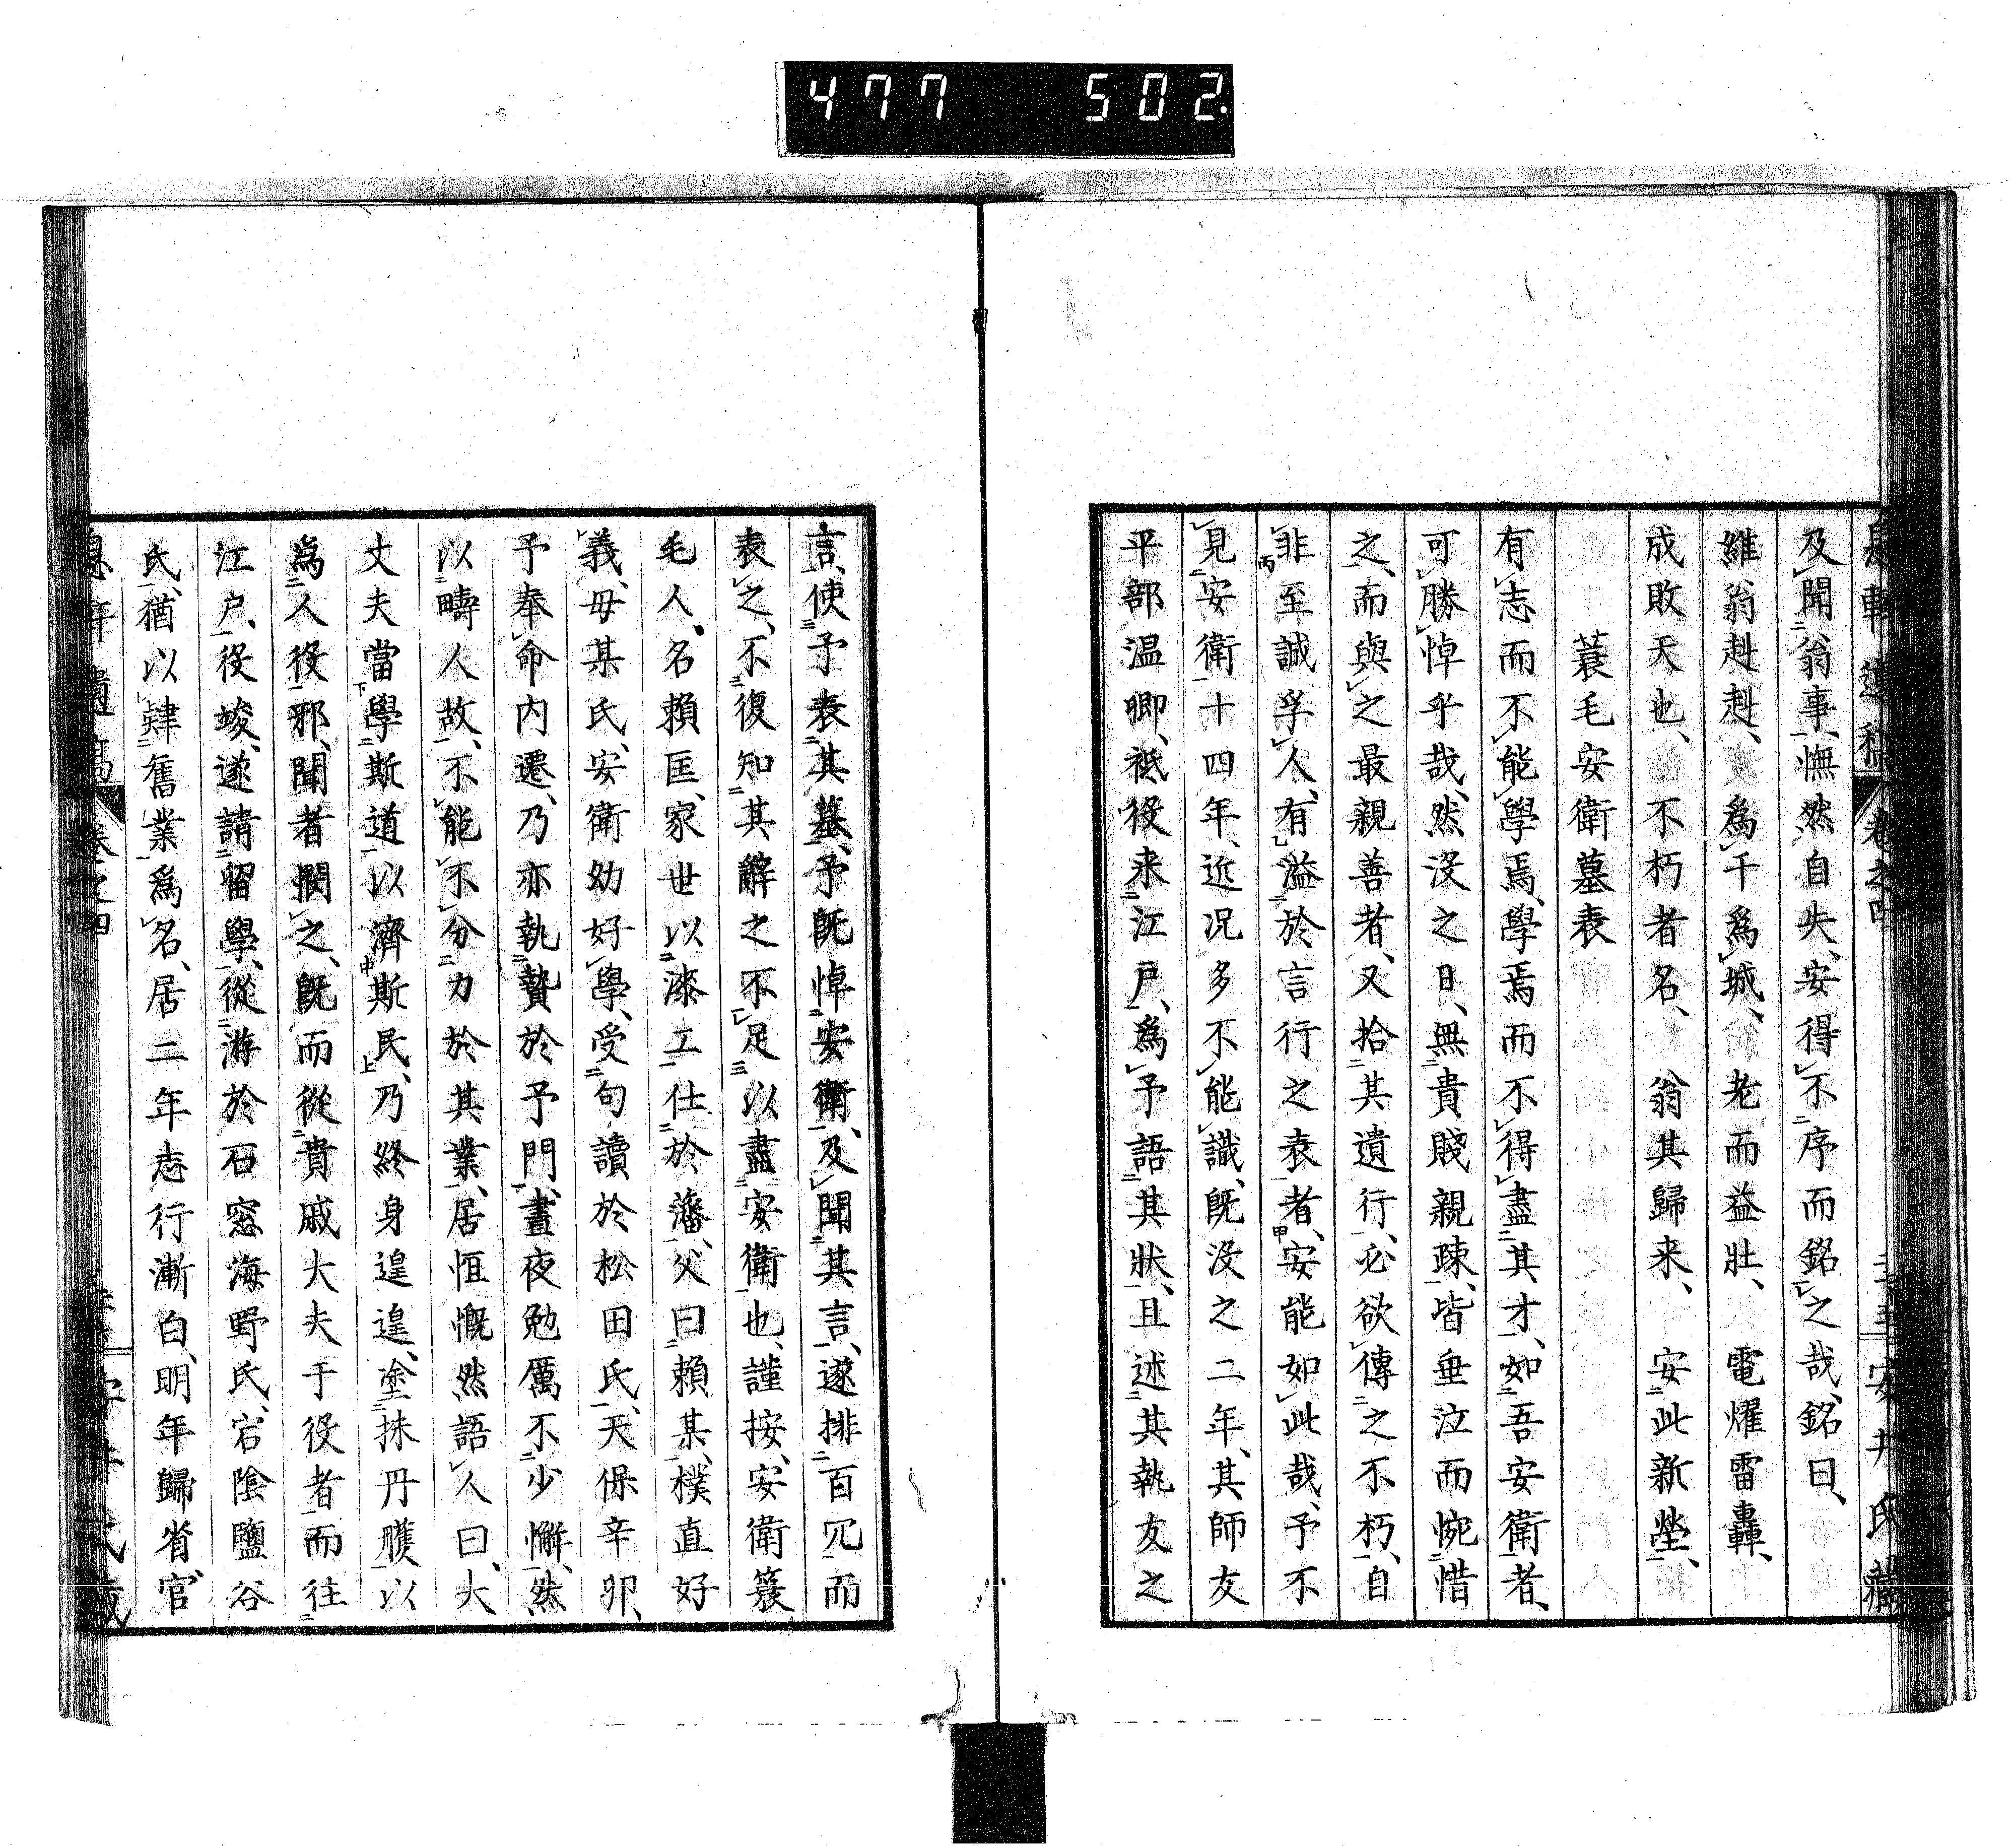 477 502
及聞翁事、憮然自失、安得不序而銘之哉、銘曰、
維翁赳赳、爲干爲城、老而益壯、電燿雷轟、
成敗天也、不朽者名、翁其歸来、安此新塋、
蓑毛安衛墓表
有志而不能學焉、學焉而不得盡其才、如吾安衛者、
可勝悼乎哉、然沒之日、無貴賤親疎、皆垂泣而惋惜
之、而與之最親善者、又拾其遺行、必欲傳之不朽、自
非至誠孚人、有溢於言行之表者、安能如此哉、予不
見安衛十四年、近况多不能識、既沒之二年、其師友
平部温卿、祗役来江戸、爲予語其狀、且述其執友之
言、使予表其墓、予既悼安衛、及聞其言、遂排百冗而
表之、不復知其辭之不足以盡安衛也、謹按、安衛簑
毛人、名賴匡、家世以漆工仕於藩、父曰賴某、樸直好
義、母某氏、安衛幼好學、受句讀於松田氏、天保辛卯、
予奉命内遷、乃亦執贄於予門、晝夜勉厲不少懈、然
以疇人故、不能不分力於其業、居恒慨然語人曰、大
丈夫當學斯道以濟斯民、乃終身遑遑、塗抹丹雘以
爲人役邪、聞者憫之、既而從貴戚大夫于役者而往
江戸、役竣、遂請留學、從游於石窓海野氏、宕陰鹽谷
氏、猶以肄舊業爲名、居二年志行漸白、明年歸省、官
息軒遺稿 卷之四 安井氏藏